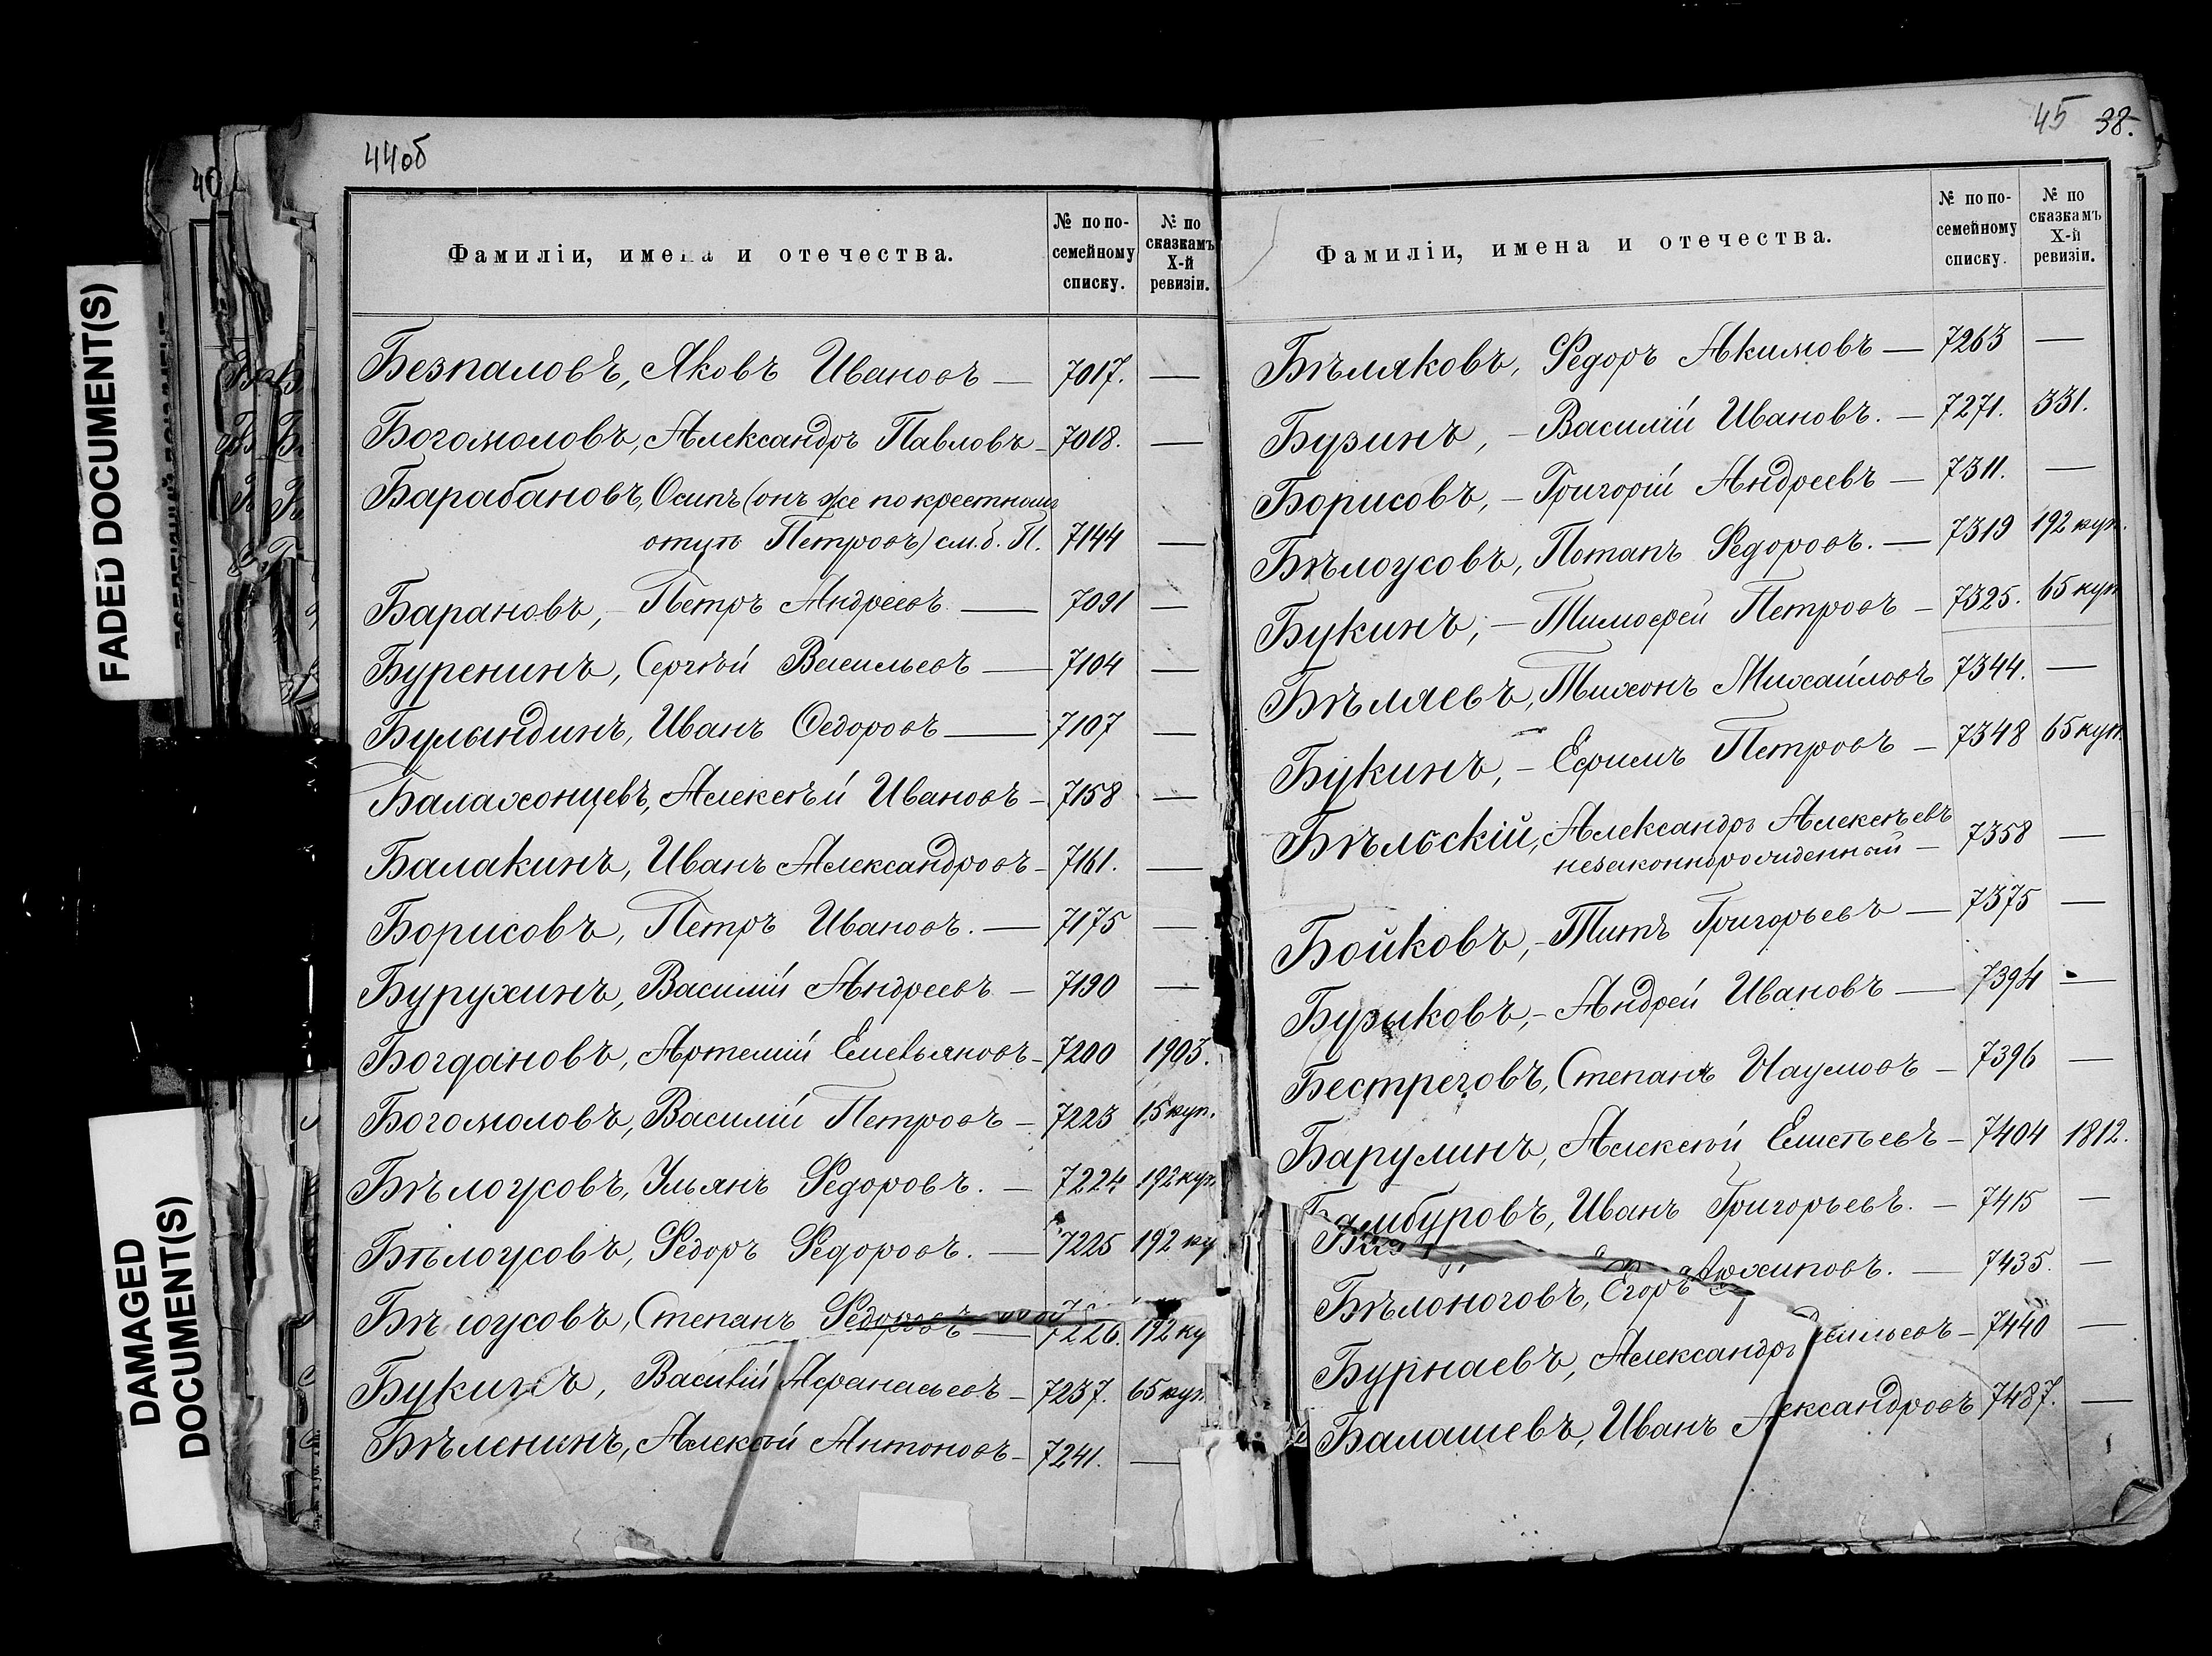 44об
Фамиліи, имена и отечества.
№ по по-
семейному
списку.
№ по
сказкамъ
X-й
ревизіи.
Безпаловъ, Яковъ Ивановъ — 7017. —
Богомоловъ, Александръ Павловъ - 7018. —
Барабановъ, Осипъ (онъ же по крестному
отцу Петровъ) см. б. П. 7144 —
Барановъ, - Петръ Андреевъ — 7091 —
Буренинъ, Сергѣй Васильевъ — 7104 —
Булындинъ, Иванъ Ѳедоровъ — 7107 —
Балахонцевъ, Алексѣй Ивановъ - 7158 —
Балакинъ, Иванъ Александровъ - 7161. —
Борисовъ, Петръ Ивановъ. — 7175 —
Бурухинъ, Василій Андреевъ - 7190 —
Богдановъ, Артемій Емельяновъ - 7200 1903.
Богомоловъ, Василій Петровъ - 7223 15 куп.
Бѣлоусовъ, Ульянъ Федоровъ. — 7224 192 куп.
Бѣлоусовъ, Федоръ Федоровъ. — 7225 192 ку
Бѣлоусовъ, Степанъ Федоровъ — 7226. 192 ку
Букинъ, Василій Афанасьевъ - 7237. 65 куп.
Бѣленинъ, Алексѣй Антоновъ - 7241. —
45 38.
Фамиліи, имена и отечества.
№ по по-
семейному
списку.
№ по
сказкамъ
X-й
ревизіи.
Бѣляковъ, Федоръ Акимовъ — 7263 —
Бузинъ, - Василій Ивановъ. — 7271. 331.
Борисовъ, - Григорій Андреевъ — 7311. —
Бѣлоусовъ, Потапъ Федоровъ. — 7319 192 куп.
Букинъ, - Тимофей Петровъ - 7325. 65 куп
Бѣляевъ, Тихонъ Михайловъ 7344. —
Букинъ, - Ефимъ Петровъ - 7348 65 куп.
Бѣльскій, Александръ Алексѣевъ
незаконнорожденный — 7358 —
Бойковъ, - Титъ Григорьевъ — 7375 —
Бузыковъ, - Андрей Ивановъ — 7394 —
Бестреговъ, Степанъ Наумовъ - 7396 —
Барулинъ, Алексѣй Елисѣевъ - 7404 1812.
Бамбуровъ, Иванъ Григорьевъ. - 7415 —
Бѣлоноговъ, Егоръ Архиповъ. — 7435. —
Бурнаевъ, Александръ сильевъ - 7440 —
Балашевъ, Иванъ Александровъ 7487. —
FADED DOCUMENT(S)
DAMAGED
DOCUMENT(S)